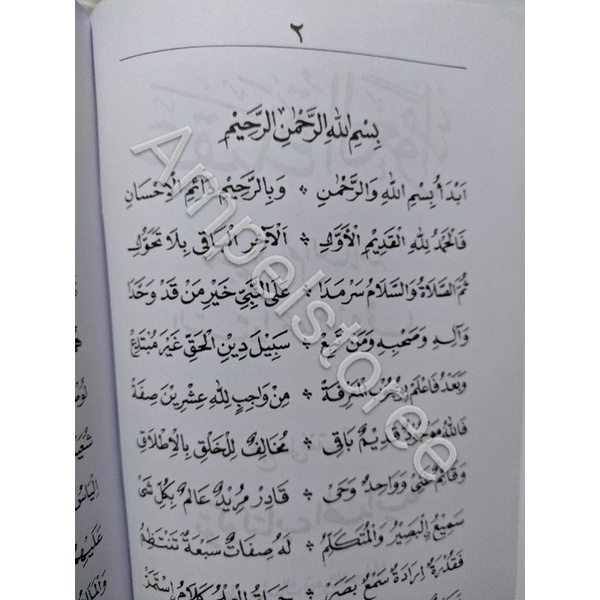 ٢
بِسْمِ اللهِ الرَّحْمٰنِ الرَّحِيْمِ
اَبْدَأُ بِسْمِ اللهِ وَالرَّحْمٰنِ * وَبِالرَّحِيْمِ دَائِمِ الْاِحْسَانِ
فَالْحَمْدُ لِلّٰهِ الْقَدِيْمِ الْأَوَّلِ * اَلْآخِرِ الْبَاقِى بِلَا تَحَوُّلِ
ثُمَّ الصَّلَاةُ وَالسَّلَامُ سَرْمَدَا * عَلَى النَّبِيِّ خَيْرِ مَنْ قَدْ وَحَّدَا
وَآلِهِ وَصَحْبِهِ وَمَنْ تَبِعْ * سَبِيْلَ دِيْنِ الْحَقِّ غَيْرَ مُبْتَدِعْ
وَبَعْدُ فَاعْلَمْ بِوُجُوْبِ الْمَعْرِفَةْ * مِنْ وَاجِبٍ لِلّٰهِ عِشْرِيْنَ صِفَةْ
فَاللهُ مَوْجُوْدٌ قَدِيْمٌ بَاقِى * مُخَالِفٌ لِلْخَلْقِ بِالْاِطْلَاقِ
وَقَائِمٌ غَنِيْ وَوَاحِدٌ وَحَيّ * قَادِرْ مُرِيْدٌ عَالِمٌ بِكُلِّ شَيْ
سَمِيْعُ الْبَصِيْرُ وَالْمُتَكَلِّمُ * لَهُ صِفَاتٌ سَبْعَةٌ تَنْتَظِمُ
فَقُدْرَةٌ اِرَادَةٌ سَمْعٌ بَصَرْ * حَيَاةُ الْعِلْمُ كَلَامٌ اسْتَمَرْ
Ampelstoree